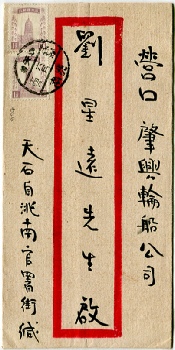 營口肇興輪船公司
劉星遠先生啟
天石自洮南官署街緘